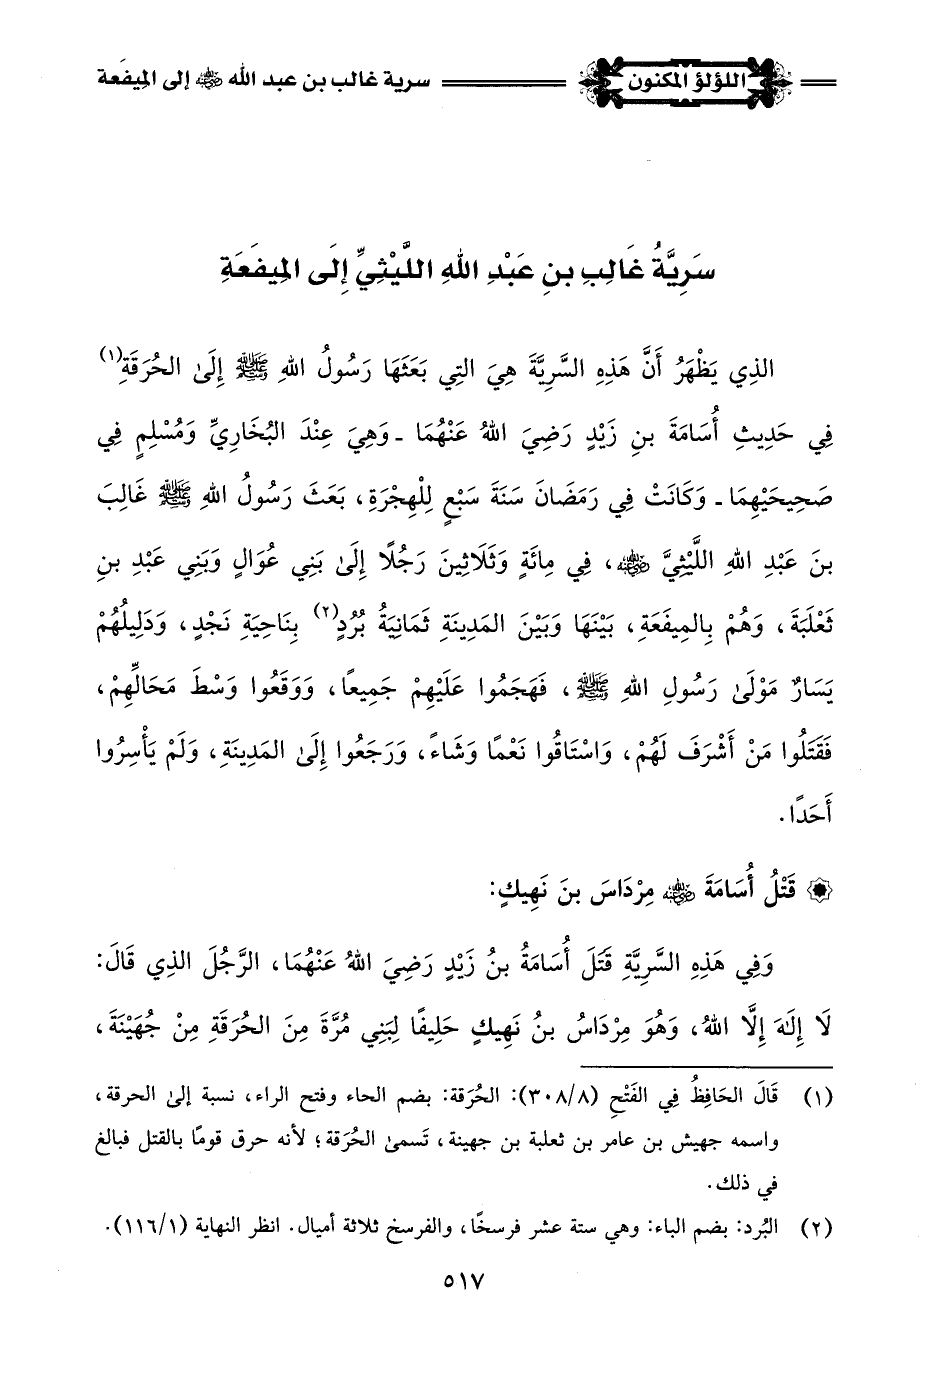 اللؤلؤ المكنون سرية غالب بن عبد الله رضي الله عنه إلى المِيفَعة
سَرِيَّةُ غَالِبِ بنِ عَبْدِ اللهِ اللَّيْثِيِّ إِلَى المِيفَعَةِ
الذِي يَظْهَرُ أَنَّ هَذِهِ السَّرِيَّةَ هِيَ التِي بَعَثَهَا رَسُولُ اللهِ ﷺ إِلَىٰ الحُرَقَةِ(١)
فِي حَدِيثِ أُسَامَةَ بنِ زَيْدٍ رَضِيَ اللهُ عَنْهُمَا ـ وَهِيَ عِنْدَ البُخَارِيِّ وَمُسْلِمٍ فِي
صَحِيحَيْهِمَا ـ وَكَانَتْ فِي رَمَضَانَ سَنَةَ سَبْعٍ لِلْهِجْرَةِ، بَعَثَ رَسُولُ اللهِ ﷺ غَالِبَ
بنَ عَبْدِ اللهِ اللَّيْثِيَّ رضي الله عنه، فِي مِائَةٍ وَثَلَاثِينَ رَجُلًا إِلَىٰ بَنِي عُوَالٍ وَبَنِي عَبْدِ بنِ
ثَعْلَبَةَ، وَهُمْ بِالمِيفَعَةِ، بَيْنَهَا وَبَيْنَ المَدِينَةِ ثَمَانِيَةُ بُرُدٍ(٢) بِنَاحِيَةِ نَجْدٍ، وَدَلِيلُهُمْ
يَسَارٌ مَوْلَىٰ رَسُولِ اللهِ ﷺ، فَهَجَمُوا عَلَيْهِمْ جَمِيعًا، وَوَقَعُوا وَسْطَ مَحَالِّهِمْ،
فَقَتَلُوا مَنْ أَشْرَفَ لَهُمْ، وَاسْتَاقُوا نَعْمًا وَشَاءً، وَرَجَعُوا إِلَىٰ المَدِينَةِ، وَلَمْ يَأْسِرُوا
أَحَدًا.
قَتْلُ أُسَامَةَ رضي الله عنه مِرْدَاسَ بنَ نَهِيكٍ:
وَفِي هَذِهِ السَّرِيَّةِ قَتَلَ أُسَامَةُ بنُ زَيْدٍ رَضِيَ اللهُ عَنْهُمَا، الرَّجُلَ الذِي قَالَ:
لَا إِلَهَ إِلَّا اللهُ، وَهُوَ مِرْدَاسُ بنُ نَهِيكٍ حَلِيفًا لِبَنِي مُرَّةَ مِنَ الحُرَقَةِ مِنْ جُهَيْنَةَ،
(١) قَالَ الحَافِظُ فِي الفَتْحِ (٣٠٨/٨): الحُرَقة: بضم الحاء وفتح الراء، نسبة إلىٰ الحرقة،
واسمه جهيش بن عامر بن ثعلبة بن جهينة، تَسمىٰ الحُرَقة؛ لأنه حرق قومًا بالقتل فبالغ
في ذلك.
(٢) البُرد: بضم الباء: وهي ستة عشر فرسخًا، والفرسخ ثلاثة أميال. انظر النهاية (١١٦/١).
٥١٧